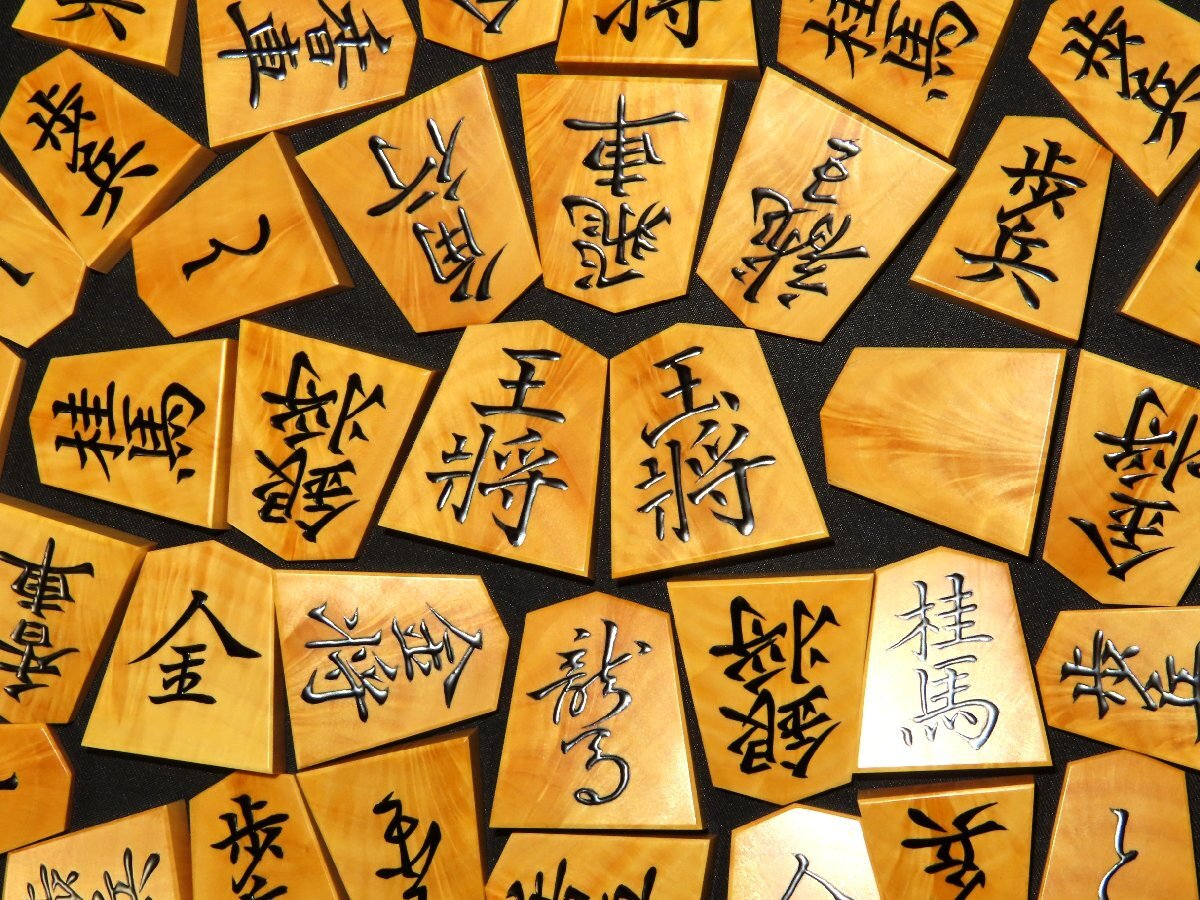 香車
桂馬
歩兵
歩兵
と
角行
飛車
龍王
歩兵
桂馬
銀将
王将
玉将
金将
香車
金
金将
龍馬
銀将
桂馬
歩兵
歩
兵
と